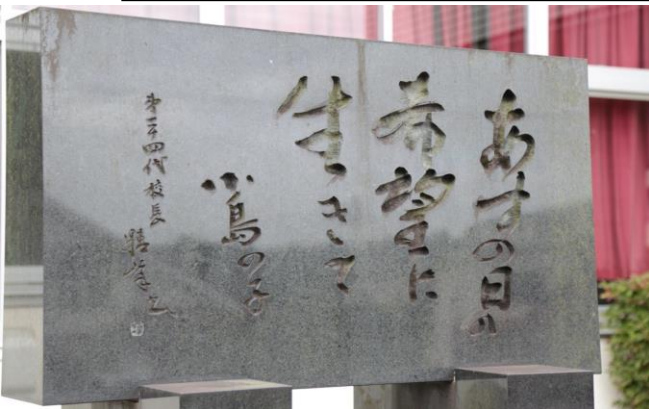 あすの日
希望に
生きて
小島の子
第二十四代校長